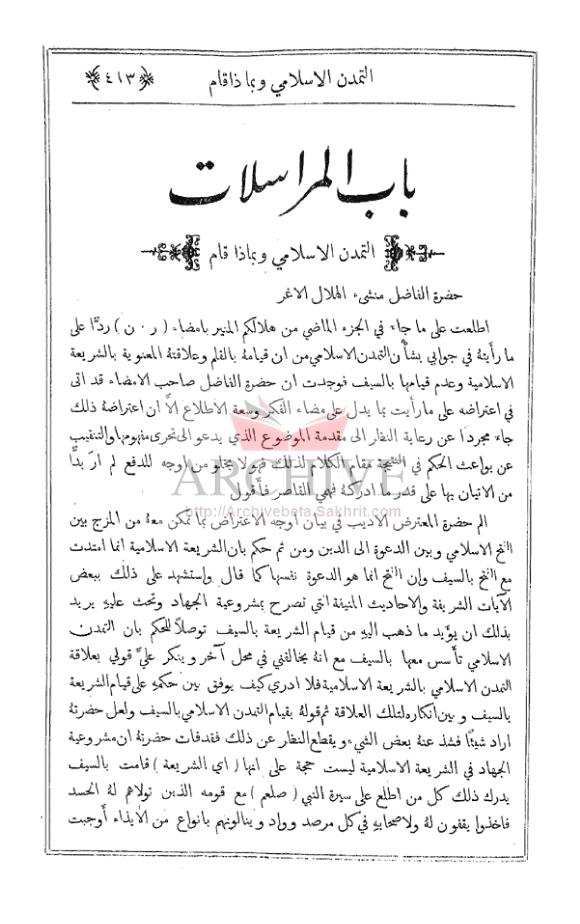 التمدن الاسلامي وبماذا قام ﴿٤١٣﴾
باب المراسلات
التمدن الاسلامي وبماذا قام
حضرة الفاضل منشىء الهلال الاغر
اطلعت على ما جاء في الجزء الماضي من هلالكم المنير بامضاء (ر . ن) ردًّا على
ما رأيتهُ في جوابي بشأن التمدن الاسلامي من ان قيامهُ بالقلم وعلاقتهُ المعنوية بالشريعة
الاسلامية وعدم قيامها بالسيف فوجدت ان حضرة الفاضل صاحب الامضاء قد اتى
في اعتراضه على ما رأيت بما يدل على مضاء الفكر وسعة الاطلاع الاَّ ان اعتراضهُ ذلك
جاء مجردًا عن رعاية النظار الى مقدمة الموضوع الذي يدعو الى تحرى مفهومها والتنقيب
عن بواعث الحكم في النتيجة مقام الكلام لذلك فهو لا يخلو من اوجه للدفع لم ارَ بدًّا
من الاتيان بها على قدر ما ادركهُ فهمي القاصر فأقول
ARCHIVE
http://Archivebeta.Sakhrit.com
الم حضرة المعترض الاديب في بيان اوجه الاعتراض بما تمكن معهُ من المزج بين
الفتح الاسلامي وبين الدعوة الى الدين ومن ثم حكم بان الشريعة الاسلامية انما امتدت
مع الفتح بالسيف وإن الفتح انما هو الدعوة نفسها كما قال واستشهد على ذلك ببعض
الآيات الشريفة والاحاديث المنيفة التي تصرح بمشروعية الجهاد وتحث عليهِ يريد
بذلك ان يؤيد ما ذهب اليهِ من قيام الشريعة بالسيف توصلاً للحكم بان التمدن
الاسلامي تأسس معها بالسيف مع انهُ يخالفني في محل آخر وينكر عليَّ قولي بعلاقة
التمدن الاسلامي بالشريعة الاسلامية فلا ادري كيف يوفق بين حكمهِ على قيام الشريعة
بالسيف وبين انكاره لتلك العلاقة ثم قوله بقيام التمدن الاسلامي بالسيف ولعل حضرتهُ
اراد شيئًا فشذ عنهُ بعض الشيء وبقطع النظار عن ذلك فقد فات حضرته ان مشروعية
الجهاد في الشريعة الاسلامية ليست حجة على انها (اي الشريعة) قامت بالسيف
يدرك ذلك كل من اطلع على سيرة النبي (صلعم) مع قومه الذين تولاهم لهُ الحسد
فاخذوا يقفون لهُ ولاصحابهِ في كل مرصد وواد وينالونهم بانواع من الايذاء أوجبت